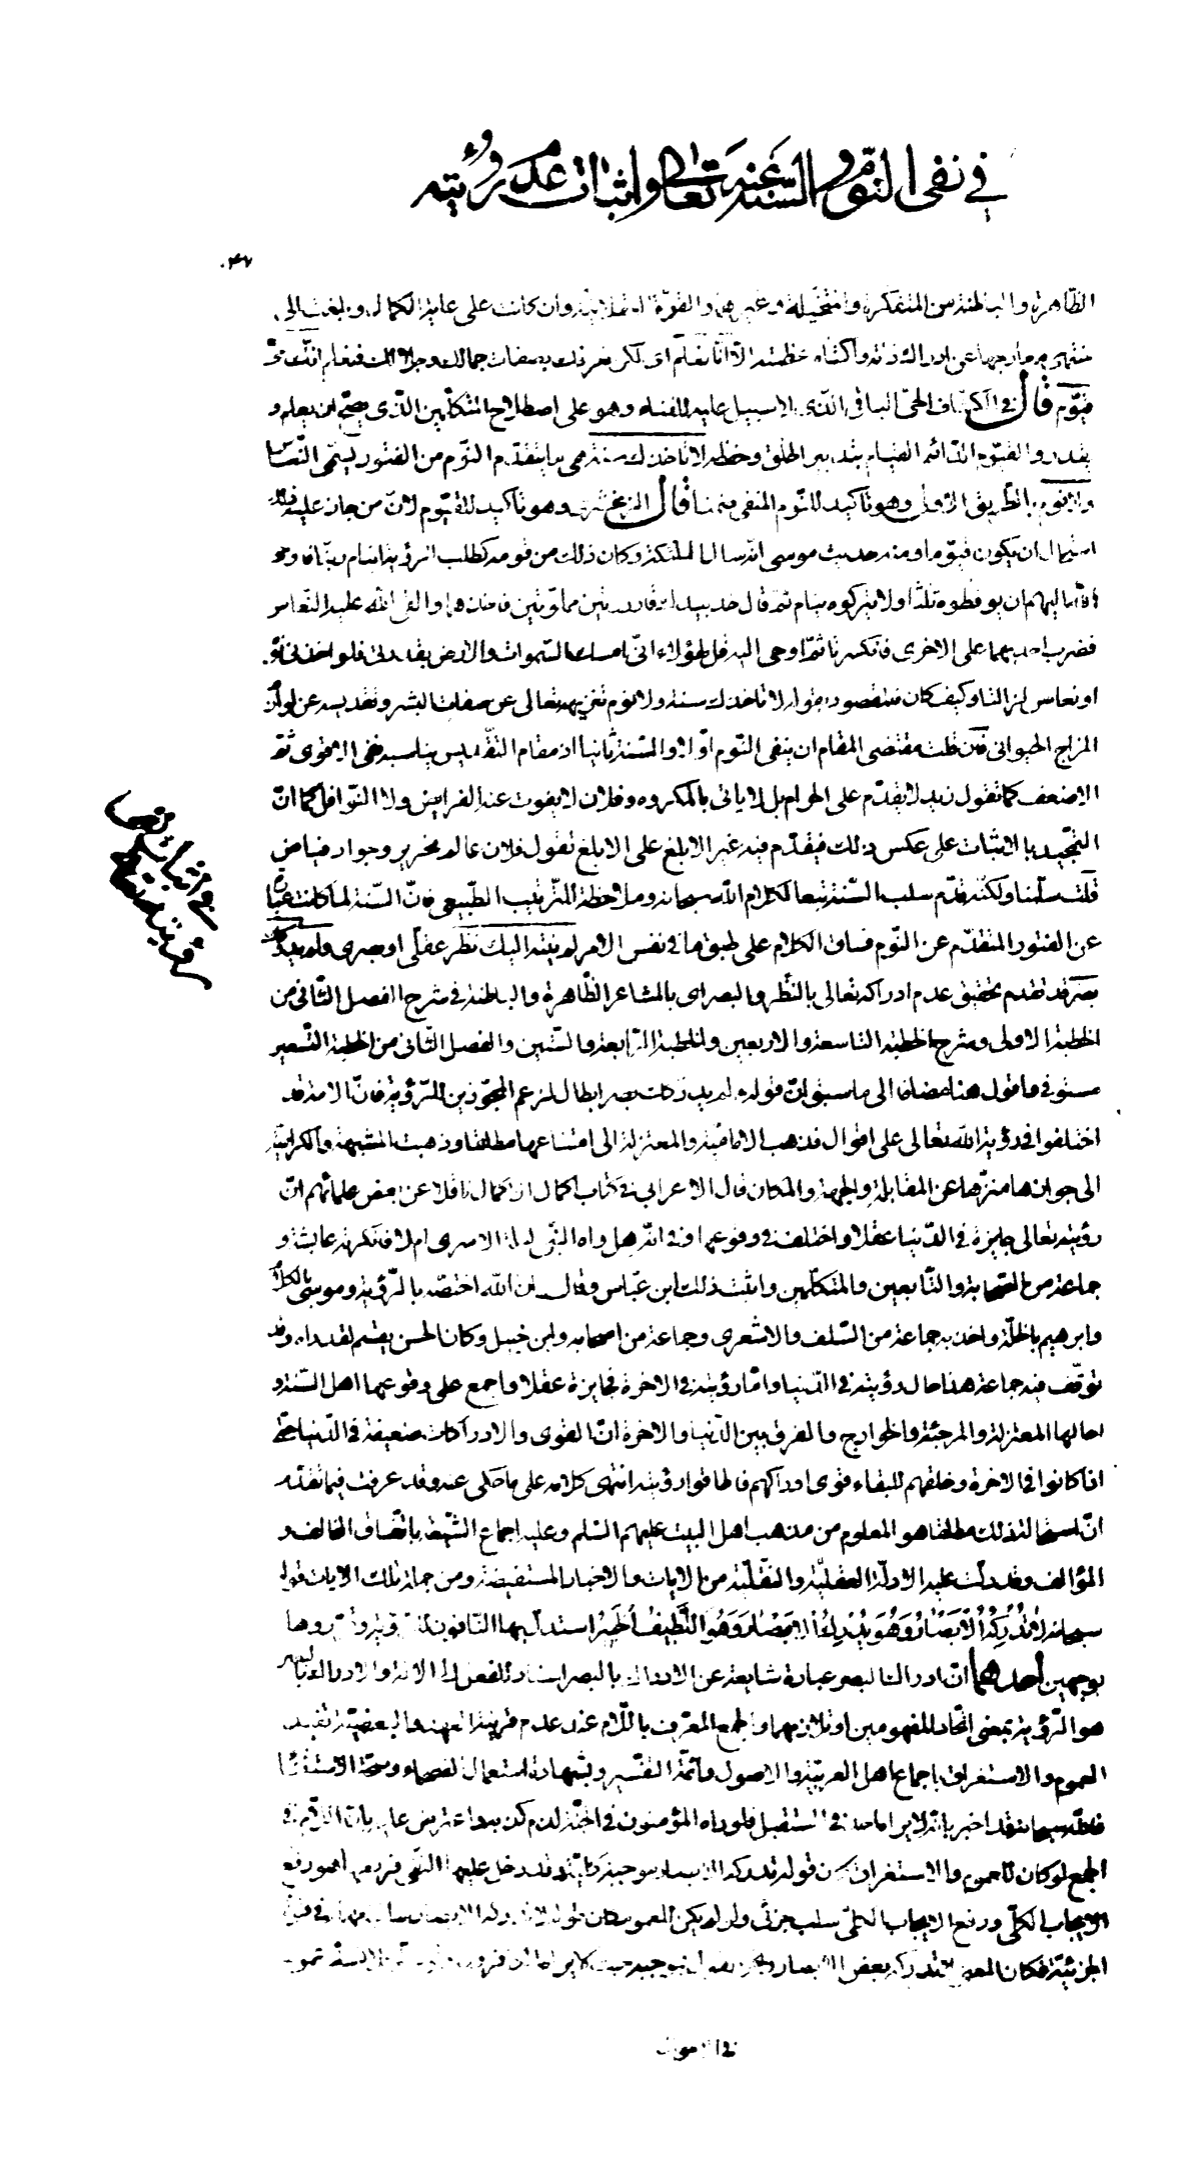 في نفى النوم والسنة عنه تعالى واثبات عدم رؤيته
۰۴۷
الظاهرة والباطنة من المتفكرة والمتخيلة وغيرهما والقوة العقلانية وان كانت على غاية الكمال وبلغت الى
منتهى معارجها عن ادراك ذاته واكتناه عظمته الا انا نعلم اى لكن نعرفك بصفات جمالك وجلالك فنعلم انك حى
قيوم قال في الكشاف الحى الباقى الذى لا سبيل عليه للفناء وهو على اصطلاح المتكلمين الذى يصح ان يعلم و
يقدر والقيوم الدائم القيام بتدبير الخلق وحفظه لا تأخذك سنة هى ما يتقدم النوم من الفتور يسمى النعاس
ولا نوم بالطريق الاولى وهو تأكيد للنوم المنفى ضمنا قال الزمخشرى وهو تأكيد للقيوم لان من جاز عليه ذلك
استحال ان يكون قيوما ومنه حديث موسى انه سال الملائكة وكان ذلك من قومه كطلب الرؤية اينام ربنا فاوحى
الله اليهم ان يوقظوه ثلثا ولا يتركوه ينام ثم قال خذ بيدك قارورتين مملوتين فاخذهما والقى الله عليه النعاس
فضرب احديهما على الاخرى فانكسرتا ثم اوحى اليه قل لهؤلاء انى امسك السموات والارض بقدرتى فلو اخذنى نوم
او نعاس لزالتا وكيف كان فالمقصود بقوله لا تاخذك سنة ولا نوم تنزيهه تعالى عن صفات البشر وتقديسه عن لوازم
المزاج الحيوانى فان قلت مقتضى المقام ان ينفى النوم اولا والسنة ثانيا اذ مقام التقديس يناسبه نفى الاقوى ثم
الاضعف كما تقول زيد لا يقدم على الحرام بل لا ياتى بالمكروه وفلان لا يفوت عنه الفرايض ولا النوافل كما ان
التمجيد بالاثبات على عكس ذلك فيقدم فيه غير الابلغ على الابلغ تقول فلان عالم نحرير وجواد فياض
قلت سلمنا ولكنه قدم سلب السنة تبعا لكلام الله سبحانه وملاحظة للترتيب الطبيعى فان السنة لما كانت عبارة
عن الفتور المتقدم عن النوم فساق الكلام على طبق ما في نفس الامر لم ينته اليك نظر عقلى او بصرى ولم يدركك
بصر قد تقدم تحقيق عدم ادراكه تعالى بالنظر والبصر اى بالمشاعر الظاهرة والباطنة في شرح الفصل الثانى من
الخطبة الاولى وشرح الخطبة التاسعة والاربعين والخطبة الرابعة والستين والفصل الثانى من الخطبة التسعين
مستوفى واقول هنا مضافا الى ما سبق ان قوله لم يدركك بصر ابطال لزعم المجوزين للرؤية فان الامة قد
اختلفوا في رؤية الله تعالى على اقوال فذهب الامامية والمعتزلة الى امتناعها مطلقا وذهبت المشبهة والكرامية
الى جوازها منزها عن المقابلة والجهة والمكان قال الاعرابى في كتاب اكمال الاكمال ناقلا عن بعض علمائهم ان
رؤيته تعالى جايزة في الدنيا عقلا واختلف في وقوعها وفى انه هل راه النبى ليلة الاسرى ام لا فانكرته عايشة و
جماعة من الصحابة والتابعين والمتكلمين واثبت ذلك ابن عباس وقال ان الله اختصه بالرؤية وموسى بالكلام
وابرهيم بالخلة واخذ به جماعة من السلف والاشعرى وجماعة من اصحابه وابن حنبل وكان الحسن يقسم لقد راه وقد
توقف فيه جماعة هذا حال رؤيته في الدنيا واما رؤيته في الاخرة فجايزة عقلا واجمع على وقوعها اهل السنة و
احالها المعتزلة والمرجئة والخوارج والفرق بين الدنيا والاخرة ان القوى والادراكات ضعيفة في الدنيا حتى
اذا كانوا في الاخرة وخلقهم للبقاء قوى ادراكهم فاطاقوا رؤيته انتهى كلامه على ما حكى عنه وقد عرفت فيما تقدم
ان استحالة ذلك مطلقا هو المعلوم من مذهب اهل البيت عليهم السلم وعليه اجماع الشيعة باتفاق المخالف و
المؤالف وقد دلت عليه الادلة العقلية والنقلية من الايات والاخبار المستفيضة ومن جملة تلك الايات قوله
سبحانه لا تدركه الابصار وهو يدرك الابصار وهو اللطيف الخبير استدل بها النافون للرؤية وقرروها
بوجهين احدهما ان ادراك البصر عبارة شايعة عن الادراك بالبصر اسنادا للفعل الى الالة والادراك بالبصر
هو الرؤية بمعنى اتحاد المفهومين او تلازمهما والجمع المعرف باللام عند عدم قرينة العهد والبعضية يفيد
العموم والاستغراق باجماع اهل العربية والاصول وائمة التفسير وبشهادة استعمال الفصحاء وصحة الاستثناء
فالله سبحانه قد اخبر بانه لا يراه احد في المستقبل فلو راه المؤمنون في الجنة لزم كذبه واعترض عليه بان اللام في
الجمع لو كان للعموم والاستغراق كان قوله تدركه الابصار موجبة كلية وقد دخل عليها النفى فرفعها هو رفع
الايجاب الكلى ورفع الايجاب الكلى سلب جزئى ولو لم يكن للعموم كان قوله لا تدركه الابصار سالبة مهملة في قوة
الجزئية فكان المعنى لا تدركه بعض الابصار ونحن نقول بموجبه حيث لا يراه الكافرون
في اثبات نفى
رؤيته تعالى